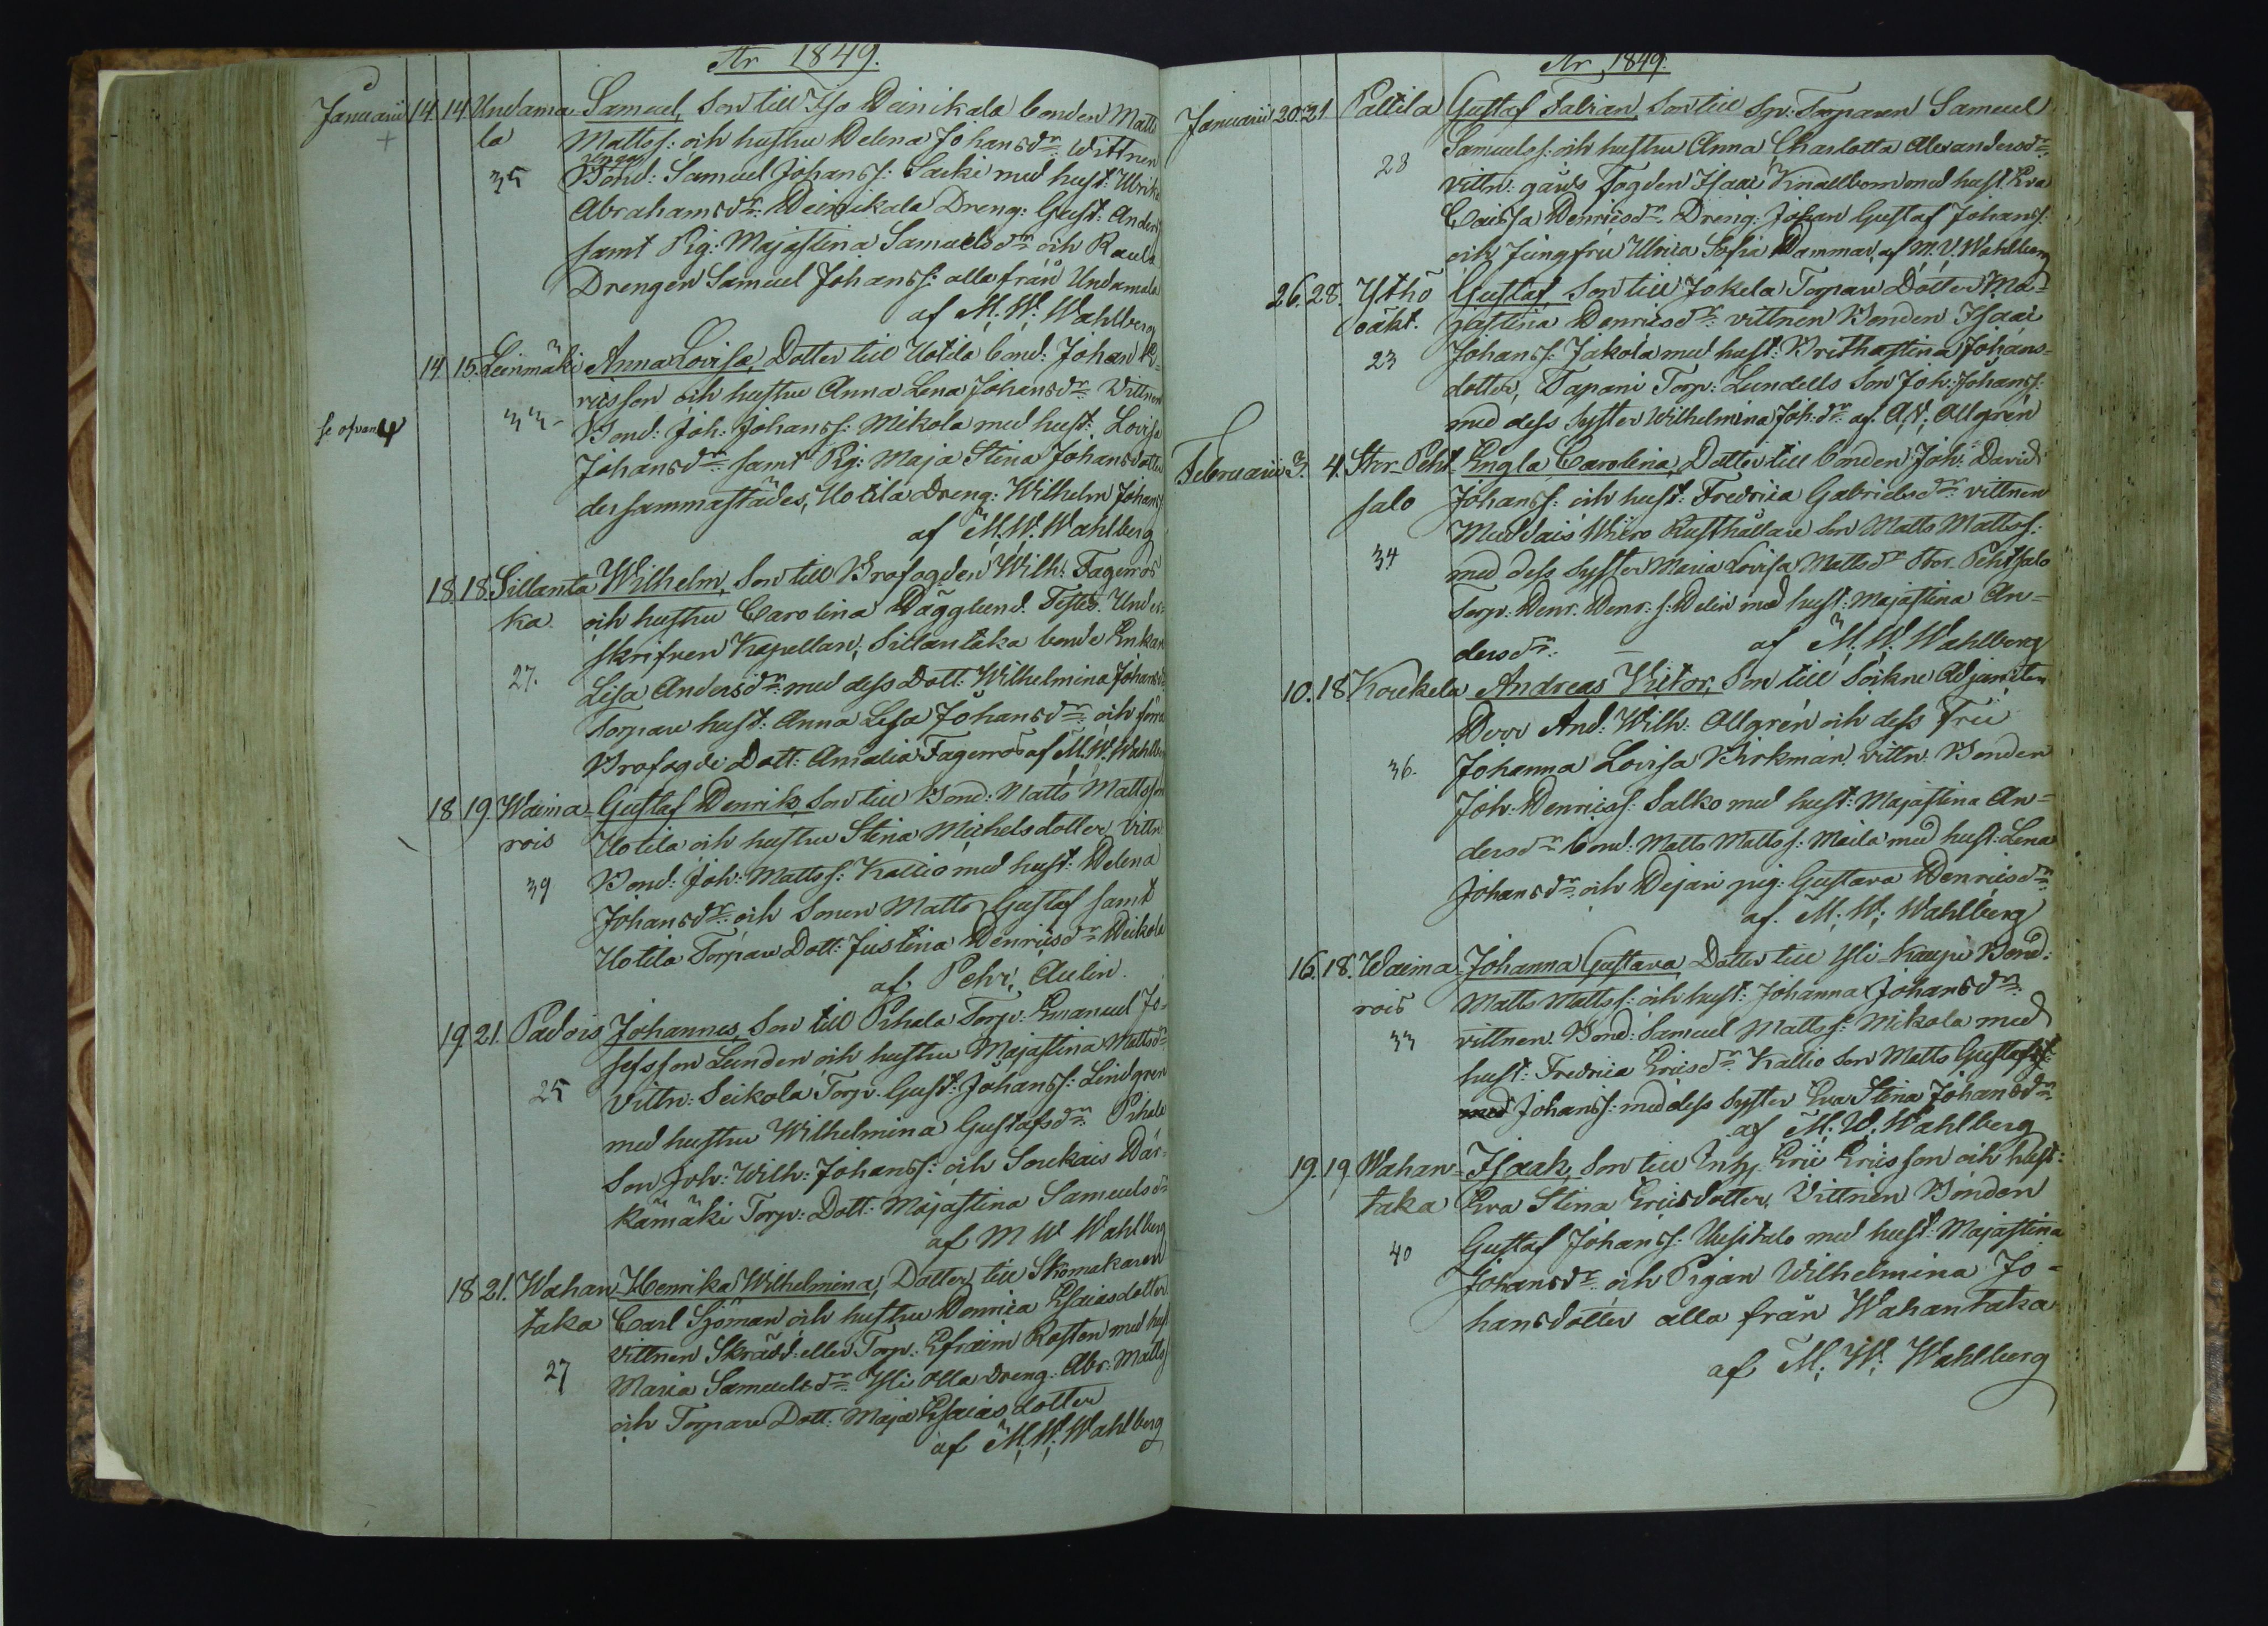 År 1849.
Januarii 14. 14. Undama- Samuel, Son till Iso Heinikala bonden Matts
+ la Mattss: och hustru Helena Johansdr: Wittnen
35 Bond: Samuel Johanss: Saeki med hust: Ulrika
Abrahamsdr: Heinikala Dreng: Gust: Anderss
samt Pig: Majastina Samuelsdr och Raula
Drengen Samuel Johanss: alla från Undamala
af M. W. Wahlberg
14 15. Leinmäki Anna Lovisa, Dotter till Uotila bond: Johan
ricsson och hustru Anna Lena Johansdr: Vittnen
se ofvan 4 33- Bond: Joh: Johanss: Mikola med hust: Lovisa
Johansdr: samt Pig: Maja Stina Johansdotter
dersammastädes, Uotila Dreng: Wilhelm Johanss:
af M. W. Wahlberg
18. 18. Sillanta Wilhelm, Son till Brofogden Wilh: Fagerros
ka. och hustru Carolina Hägglund. Testes. Under-
skrifven Kapellan; Sillantaka bonde Enkan
27. Lisa Andersdr: med dess Dott: Wilhelmina Johansdr
Torpare hust: Anna Lisa Johansdr: och förra
Brofogde Dott: Amalia Fagerros af M. W. Wahlberg
18 19. Waima- Gustaf Henrik, Son till Bond: Matts Mattsson
rois Uotila och hustru Stina Michelsdotter, Vittn:
39 Bond: Joh: Mattss: Kallio med hust: Helena
Johansdr: och Sonen Matts Gustaf samt
Uotila Torpare Dott: Justina Henricsdr Heikola
af Pehr, Aulin.
19. 21. Padois Johannes, Son till Pihala Torp: Emanuel Jo-
sefsson Lunden och hustru Majastina Mattsdr
25 Vittn: Seikola Torp. Gust: Johanss: Lindgren
med hustru Wilhelmina Gustafsdr: Pihala
Son Joh: Wilh: Johanss: och Soukais Här-
kämäki Torp: Dott: Majastina Samuelsdr
af M W Wahlberg
18 21. Wahan- Henrika Wilhelmina, Dotter till Skomakaren
taka Carl Sjöman och hustru Henrica Esaiasdotter
Vittnen Skrädd: eller Torp: Efraim Rosten med hust
27 Maria Samuelsdr: Yli Olla Dreng: Abr: Matts
och Torpare Dott: Maja Esaias dotter
af M. W. Wahlberg
År 1849.
Januarii 20. 21 Paltila Gustaf Fabian, Son till Sp: Torparen Samuel
Samuelss: och hustru Anna Charlotta Alexandersdr:
28 vittn: gårds Fogden Isaac Kinallbom med hust: Eva
Caissa Henricsdr. Dreng: Johan Gustaf Johanss:
och Jungfru Ulrica Sofia Hammar, af M. W. Wahlberg
26. 28. Ythö Gustaf, Son till Jokela Torpare Dotter Ma-
oäkt. jastina Henricsdr: vittnen Bonden Isaac
23 Johanss: Jakola med hust: Brithastina Johans-
dotter, Tapani Torp: Lundells Son Joh: Johanss:
med dess Syster Wilhelmina Joh:dr: af. A, W, Allgrén
Februarii 3. 4. Stor Peht Engla Carolina, Dotter till bonden Joh: David
salo Johanss: och hust: Fredrica Gabrielsdr: vittnen
Muddais Wikro Rusthållare Son Matts Mattss:
34 med dess Syster Maria Lovisa Mattsdr Stor Pehtsalo
Torp: Henr. Henr: s: Helin med hust: Majastina An-
dersdr: — af M. W. Wahlberg
10. 18 Koukela Andreas Victor, Son till Sockne Adjuncten
Herr And: Wilh: Allgrén och dess Fru
36. Johanna Lovisa Birkman. vittn. Bonden
Joh. Henricss: Salko med hust: Majastina An-
dersdr bond: Matts Mattss: Maila med hust: Lena
Johansdr: och Hejari pig: Gustava Henricsdr
af. M. W. Wahlberg
16. 18. Waima- Johanna Gustava, Dotter till Yli-Kaupi Bond:
rois Matts Mattss: och hust: Johanna Johansdr:
33 vittnen. Bond: Samuel Mattss: Mikola med
hust: Fredrica Ericsdr Kallio Son Matts Gustafss:
med Johanss: med dess Syster Eva Stina Johansdr
af M. W. Wahlberg
19. 19 Wahan- Isaak, Son till Eric Ericsson och hust:
taka Eva Stina Ericsdotter, Vittnen Bonden
40 Gustaf Johanss: Uusitalo med hust: Majastina
Johansdr: och Pigan Wilhelmina Jo-
hansdotter alla från Wahantaka
af M. W. Wahlberg